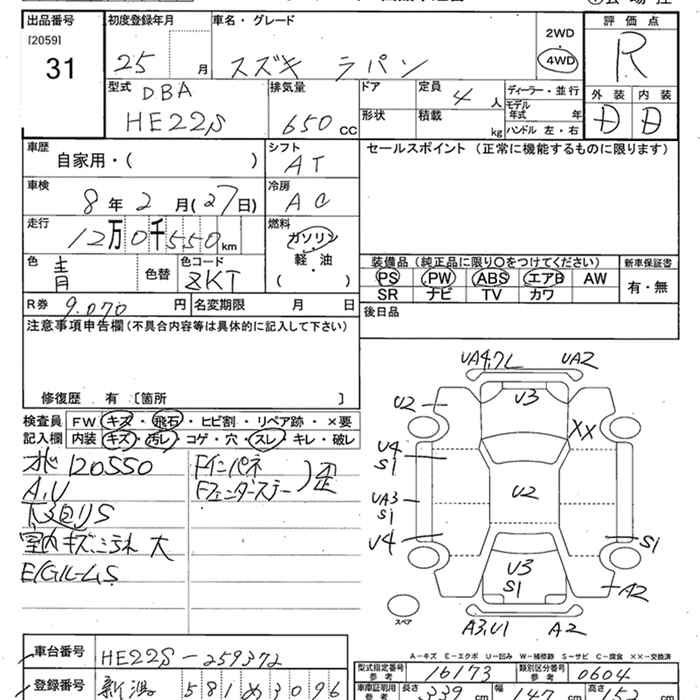 出品番号 初度登録年月 車名・グレード 2WD 評価点
[2059] 31 25 月 スズキ ラパン 4WD R
型式 DBA 排気量 ドア 定員 4 人 ディーラー・並行 外装 内装
HE22S 650 CC 形状 積載 kg モデル年式 年 D D
ハンドル 左・右
車歴 シフト セールスポイント (正常に機能するものに限ります)
自家用・( ) AT
車検 冷房
8年 2月 (27日) AC
走行 燃料
12万0千550km ガソリン
軽・油
色 色コード ( ) 装備品 (純正品に限り○をつけてください) 新車保証書
青 色替 ZKT PS PW ABS エアB AW 有・無
SR ナビ TV カワ
R券 9,070 円 名変期限 月 日 後日品
注意事項申告欄 (不具合内容等は具体的に記入して下さい)
修復歴 有 〔箇所 〕
検査員 FW キズ・飛石・ヒビ割・リペア跡・×要
記入欄 内装 キズ・汚レ・コゲ・穴・スレ・キレ・破レ
120550 Fインパネ
A,U Fフェンダーステー )歪
下廻りS
室内キズ、汚れ 大
E/GルームS
UA4,7L UA2
U2 U3
XX
U4
S1
UA3 U2
S1
U4 S1
U3
S1 A2
スペア
A3,U1 A2
A-キズ E-エクボ U-凹み W-補修跡 S-サビ C-腐食 XX-交換済
車台番号 HE22S-259372 型式指定番号 参考 16173 類別区分番号 参考 0604
登録番号 新潟 581 め 3096 車庫証明用 参考 長さ 339 cm 幅 147 cm 高さ 152 cm